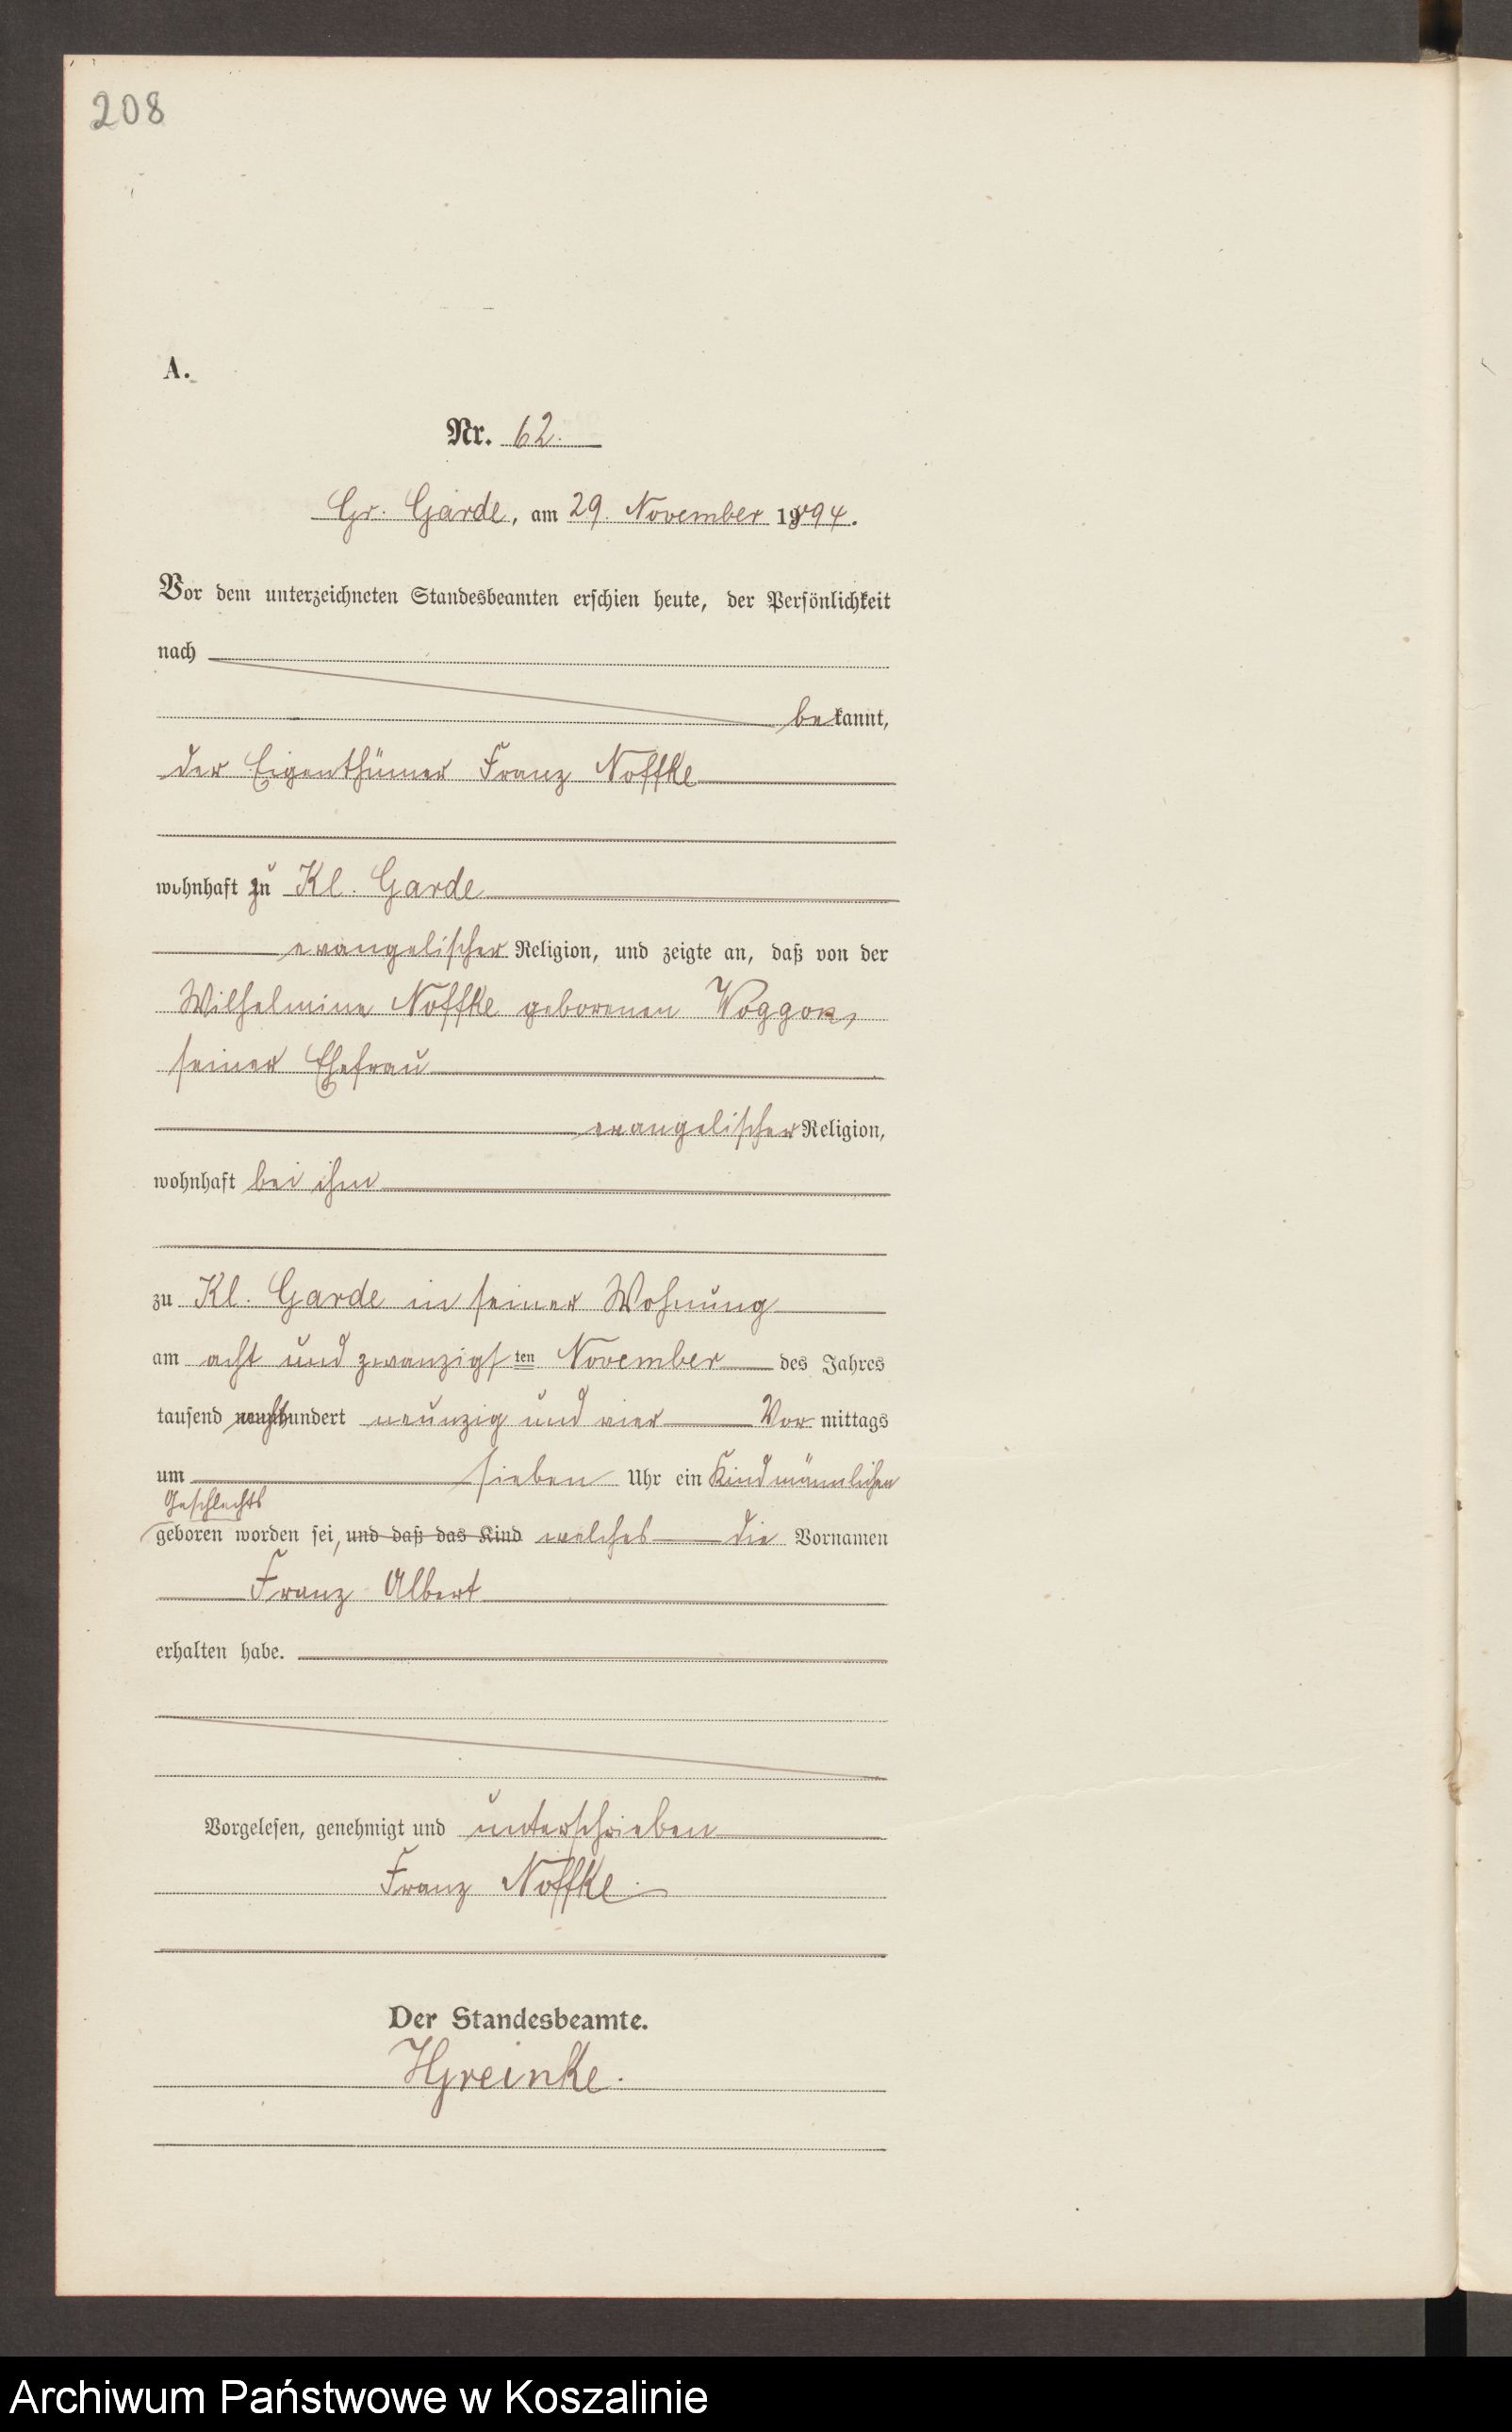 208
A.
Nr. 62.
Gr. Garde, am 29. November 1894.
Vor dem unterzeichneten Standesbeamten erschien heute, der Persönlichkeit
nach
bekannt,
der Eigenthümer Franz Noffke
wohnhaft zu Kl. Garde
evangelischer Religion, und zeigte an, daß von der
Wilhelmine Noffke geborenen Woggon,
seiner Ehefrau
evangelischer Religion,
wohnhaft bei ihm
zu Kl. Garde in seiner Wohnung
am acht und zwanzigsten November des Jahres
tausend achthundert neunzig und vier Vor mittags
um sieben Uhr ein Kind männlichen
Geschlechts
geboren worden sei, und daß das Kind welches die Vornamen
Franz Albert
erhalten habe.
Vorgelesen, genehmigt und unterschrieben
Franz Noffke.
Der Standesbeamte.
HGreinke.
Archiwum Państwowe w Koszalinie